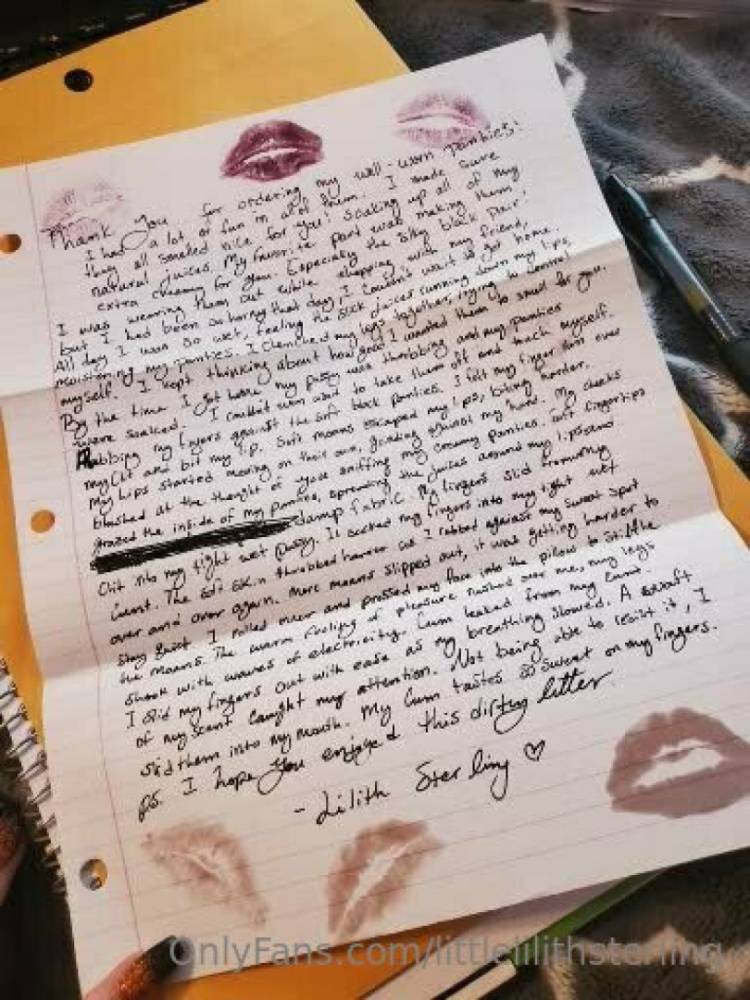 Thank you for ordering my well-worn panties!
I had a lot of fun in all of them. I made sure
they all smelled nice for you! Soaking up all of my
natural juices. My favorite part was making them
extra creamy for you. Especially the silky black pair!
I was wearing them out while shopping with my friend,
but I had been so horny that day, I couldn't wait to get home.
All day I was so wet, feeling the slick juices running down my lips,
moistening my panties. I clenched my lips together, trying to control
myself. I kept thinking about how good I wanted them to smell for you.
By the time I got home my pussy was throbbing and my panties
were soaked. I couldn't even wait to take them off and touch myself.
Rubbing my fingers against the soft black panties. I felt my finger over
my clit and bit my lip. Soft moans escaped my lips, biting harder.
My hips started moving on their own, grinding against my hand. My cheeks
blushed at the thought of you sniffing my creamy panties. Soft fingertips
grazed the inside of my panties, spreading the juices around my lips and
damp fabric. My fingers slid from my
clit into my tight wet pussy. It sucked my fingers into my tight wet
cunt. The soft skin throbbed harder as I rubbed against my sweet spot
over and over again. More moans slipped out, it was getting harder to
stay quiet. I rolled over and pressed my face into the pillow to stifle
the moans. The warm feeling of pleasure rushed over me, my legs
shook with waves of electricity. Cum leaked from my cunt.
I slid my fingers out with ease as my breathing slowed. A waft
of my scent caught my attention. Not being able to resist it, I
slid them into my mouth. My cum tastes so sweet on my fingers.
ps. I hope you enjoyed this dirty letter
- Lilith Sterling ♡
OnlyFans.com/littlelilithsterling